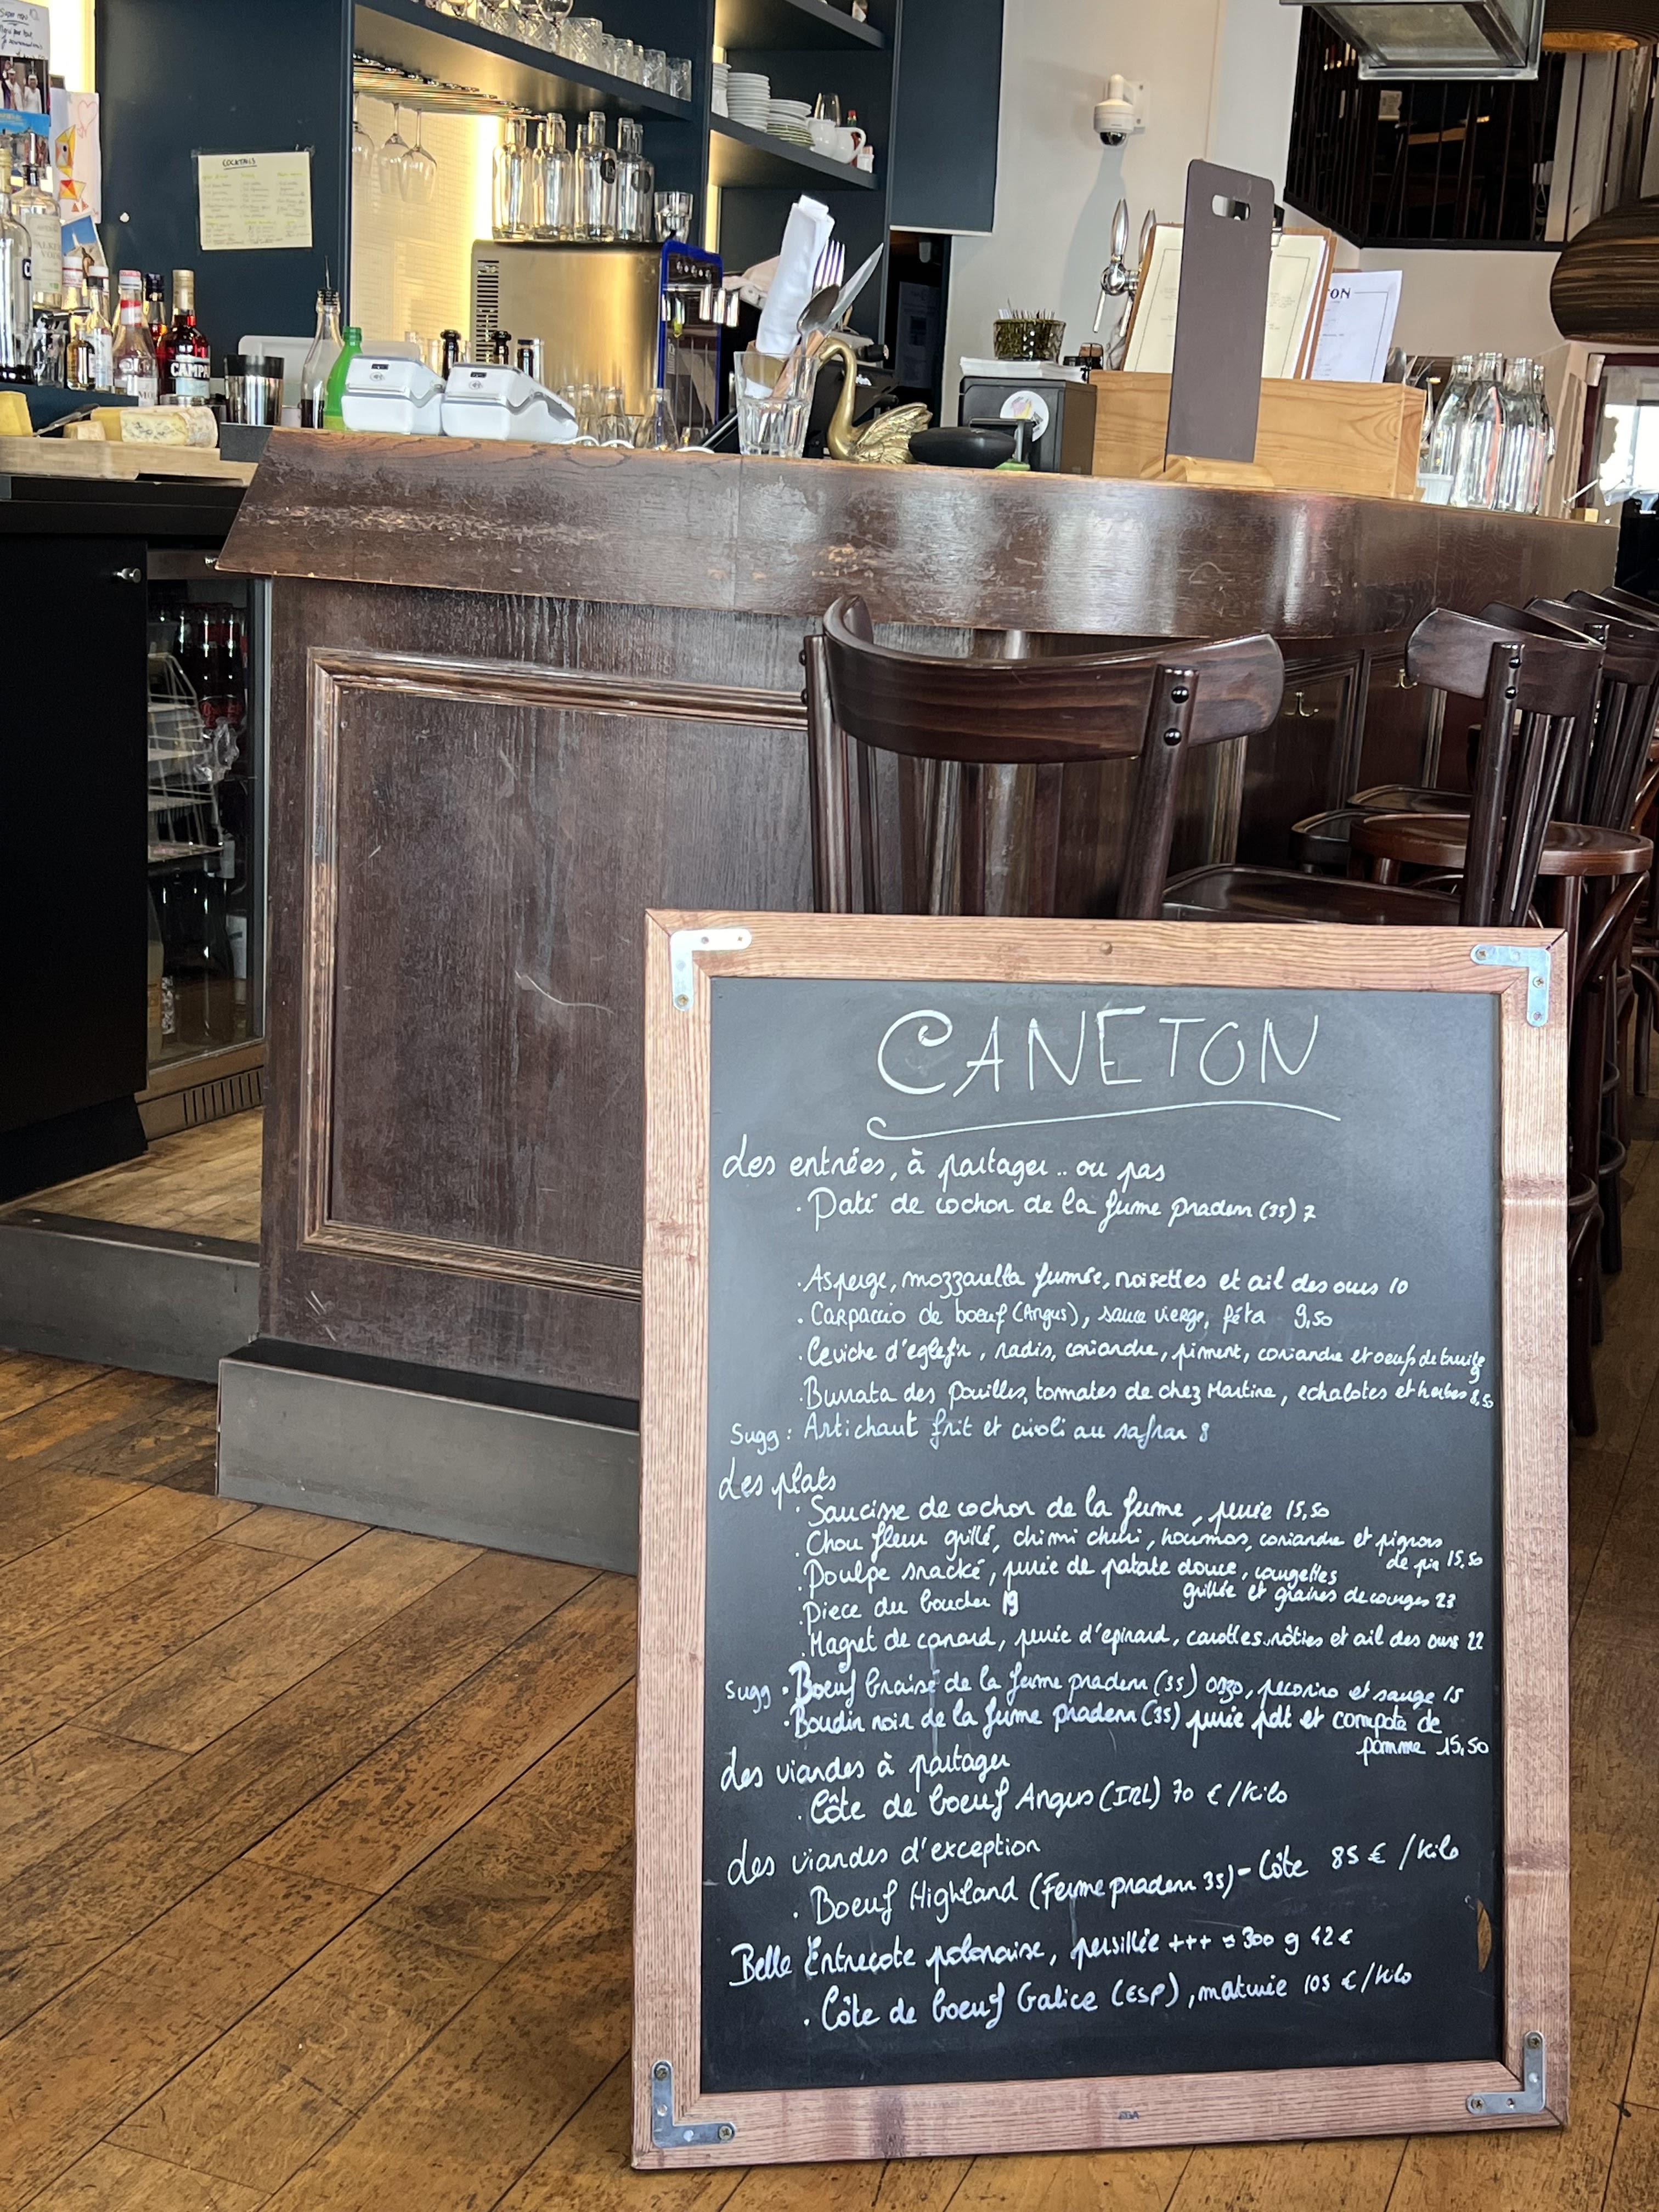 COCKTAILS
CAMPA
ON
CANETON
Les entrées, à partager .. ou pas
. Paté de cochon de la ferme pradenn (35) 7
. Asperge, mozzarella fumée, noisettes et ail des ours 10
. Carpaccio de boeuf (Angus), sauce vierge, féta 9,50
. Ceviche d'eglefin, radis, coriandre, piment, coriandre et oeufs de truite 9
. Burrata des Pouilles, tomates de chez Martine, echalotes et herbes 8,50
Sugg : Artichaut frit et aïoli au safran 8
Les plats
. Saucisse de cochon de la ferme, purée 15,50
. Chou fleur grillé, chimi churi, houmos, coriandre et pignons
de pin 15,50
. Poulpe snacké, purée de patate douce, courgettes
grillée et graines de courges 23
. Piece du boucher 19
. Magret de canard, purée d'epinard, carottes rôties et ail des ours 22
Sugg . Boeuf braisé de la ferme pradenn (35) orzo, pecorino et sauge 15
. Boudin noir de la ferme pradenn (35) purée pdt et compote de
pomme 15,50
Les viandes à partager
. Côte de boeuf Angus (IRL) 70 € /kilo
Les viandes d'exception
. Boeuf Highland (Ferme pradenn 35) - Côte 85 € /kilo
Belle Entrecote polonaise, persillée +++ ≈ 300 g 42 €
. Côte de boeuf Galice (ESP), maturée 105 € /kilo